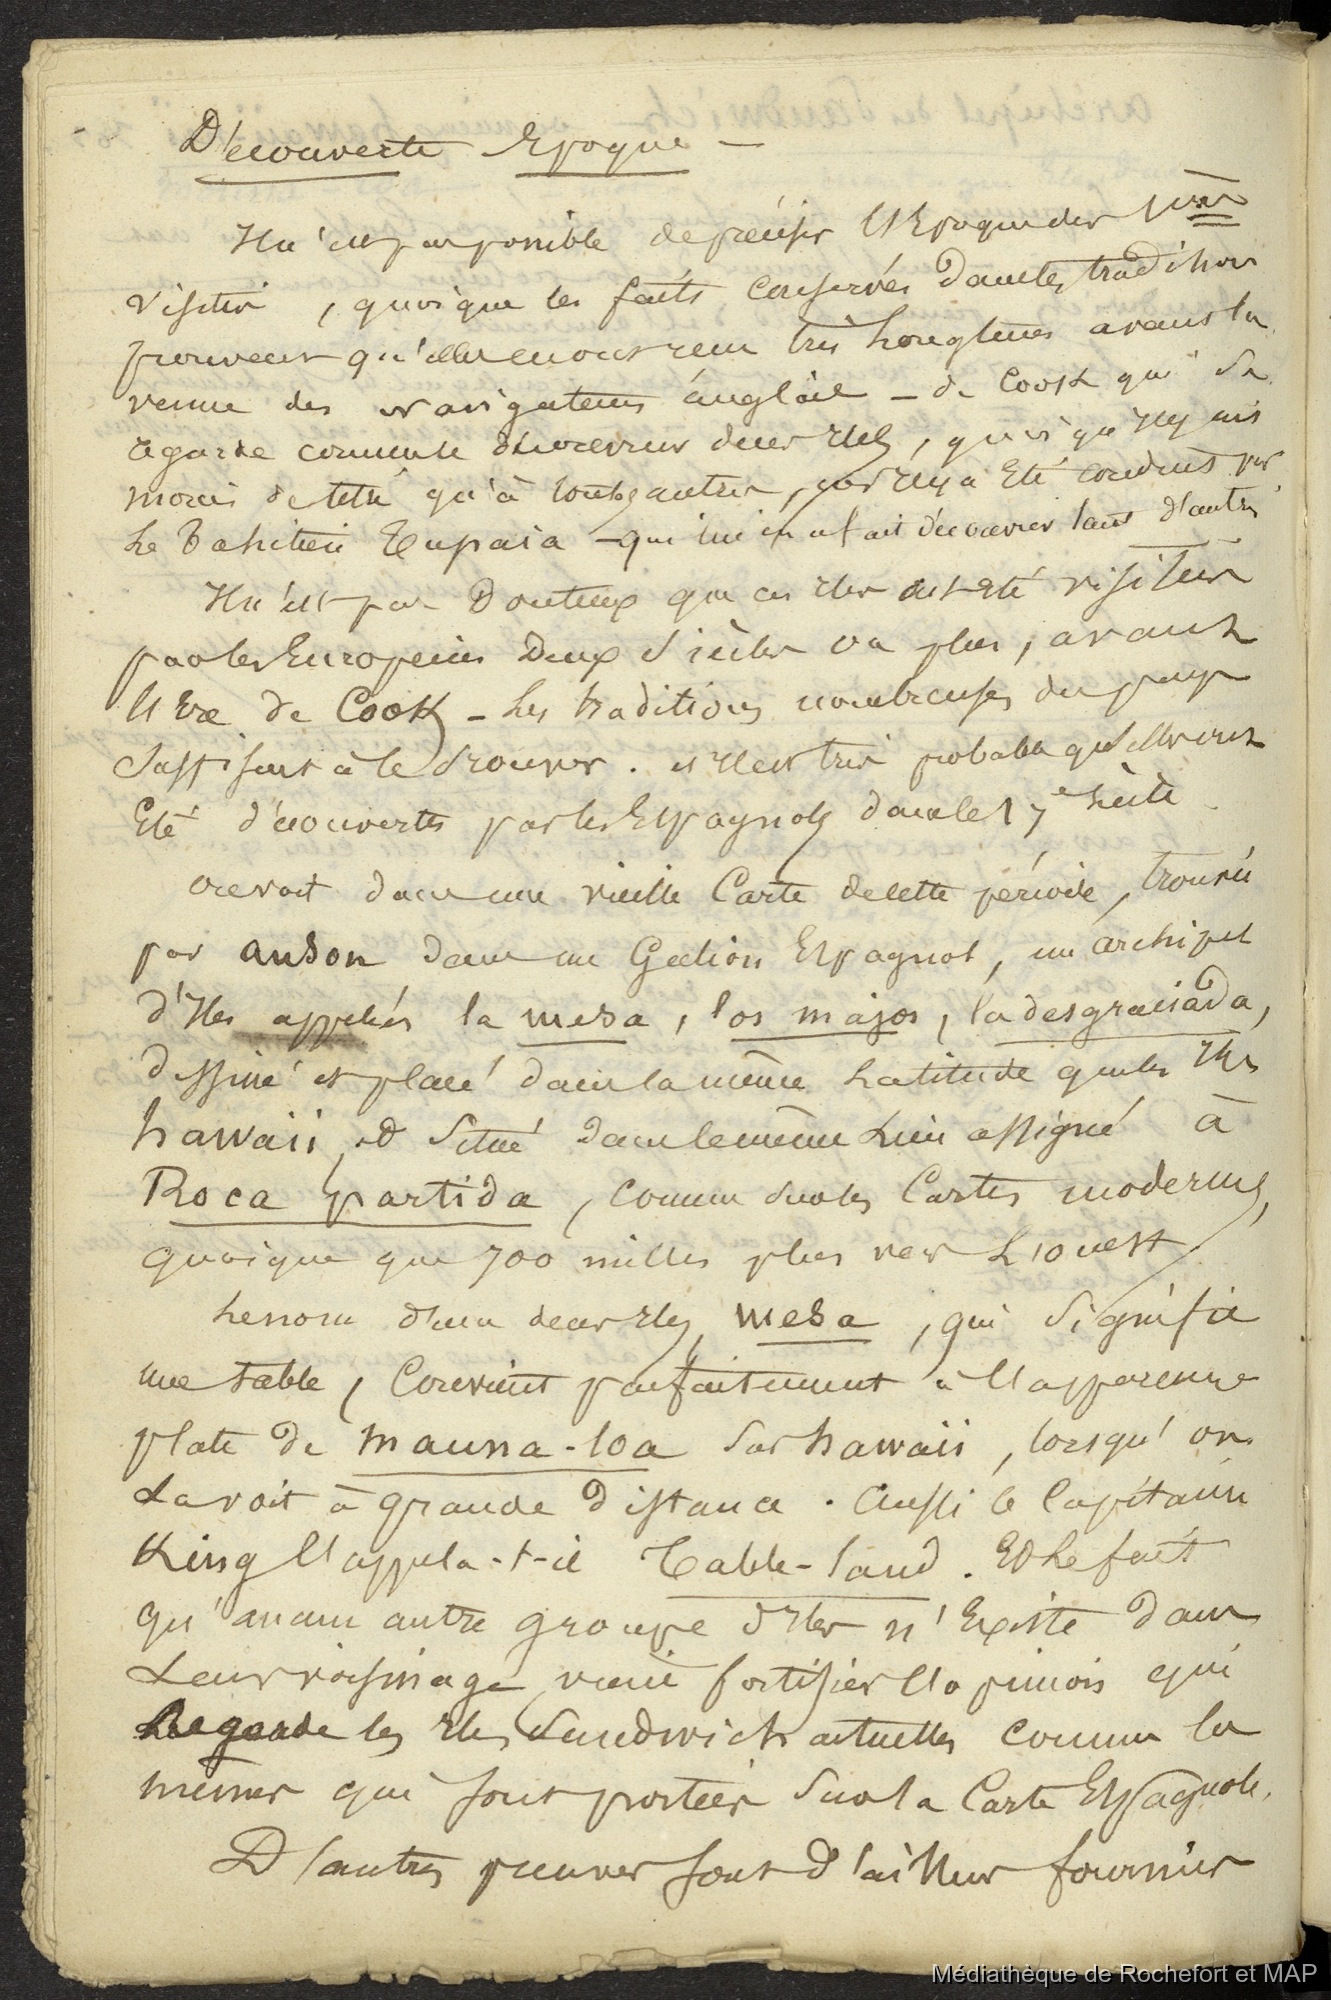 Découverte Epoque —
Il n'est pas possible de préciser l'Epoque des 1ères
visites, quoique les faits conservés dans les traditions
prouvent qu'elles eurent lieu très longtems avant la
venue des navigateurs anglais — de Cook qui se
regarde comme le découvreur de ces Iles, quoiqu'il y ait
moins de titre qu'à toutes autres, car il y a été conduit par
le Tahitien Tupaia — qui lui en a fait découvrir tant d'autres
Il n'est pas douteux que ces Iles ont été visitées
par les Européens deux siècles ou plus, avant
l'Ere de Cook — Les traditions nombreuses du pays
suffisent à le prouver. et il est très probable qu'elles ont
Eté découvertes par les Espagnols dans le 17e siècle.
On voit dans une vieille Carte de cette période, trouvée
par anson dans un Galion Espagnol, un archipel
d'Iles appelées la mesa, los majos, la desgraciada,
dessiné et placé dans la même latitude que les Iles
hawaii, et situé dans le même lieu assigné à
Roca partida, comme sur les Cartes modernes,
quoique que 700 milles plus vers L'ouest
Le nom d'une de ces Iles, mesa, qui signifie
une table, convient parfaitement à l'apparence
plate de mauna-loa sur hawaii, lorsqu'on
la voit à grande distance. Aussi le Capitaine
King l'appela-t-il Table-land. Et le fait
qu'aucun autre groupe d'Iles n'Existe dans
Leur voisinage, vient fortifier l'opinion qui
Regarde les Iles Sandwich actuelles comme les
mêmes qui sont portées sur la Carte Espagnole.
D'autres preuves sont d'ailleurs fournies
Médiathèque de Rochefort et MAP